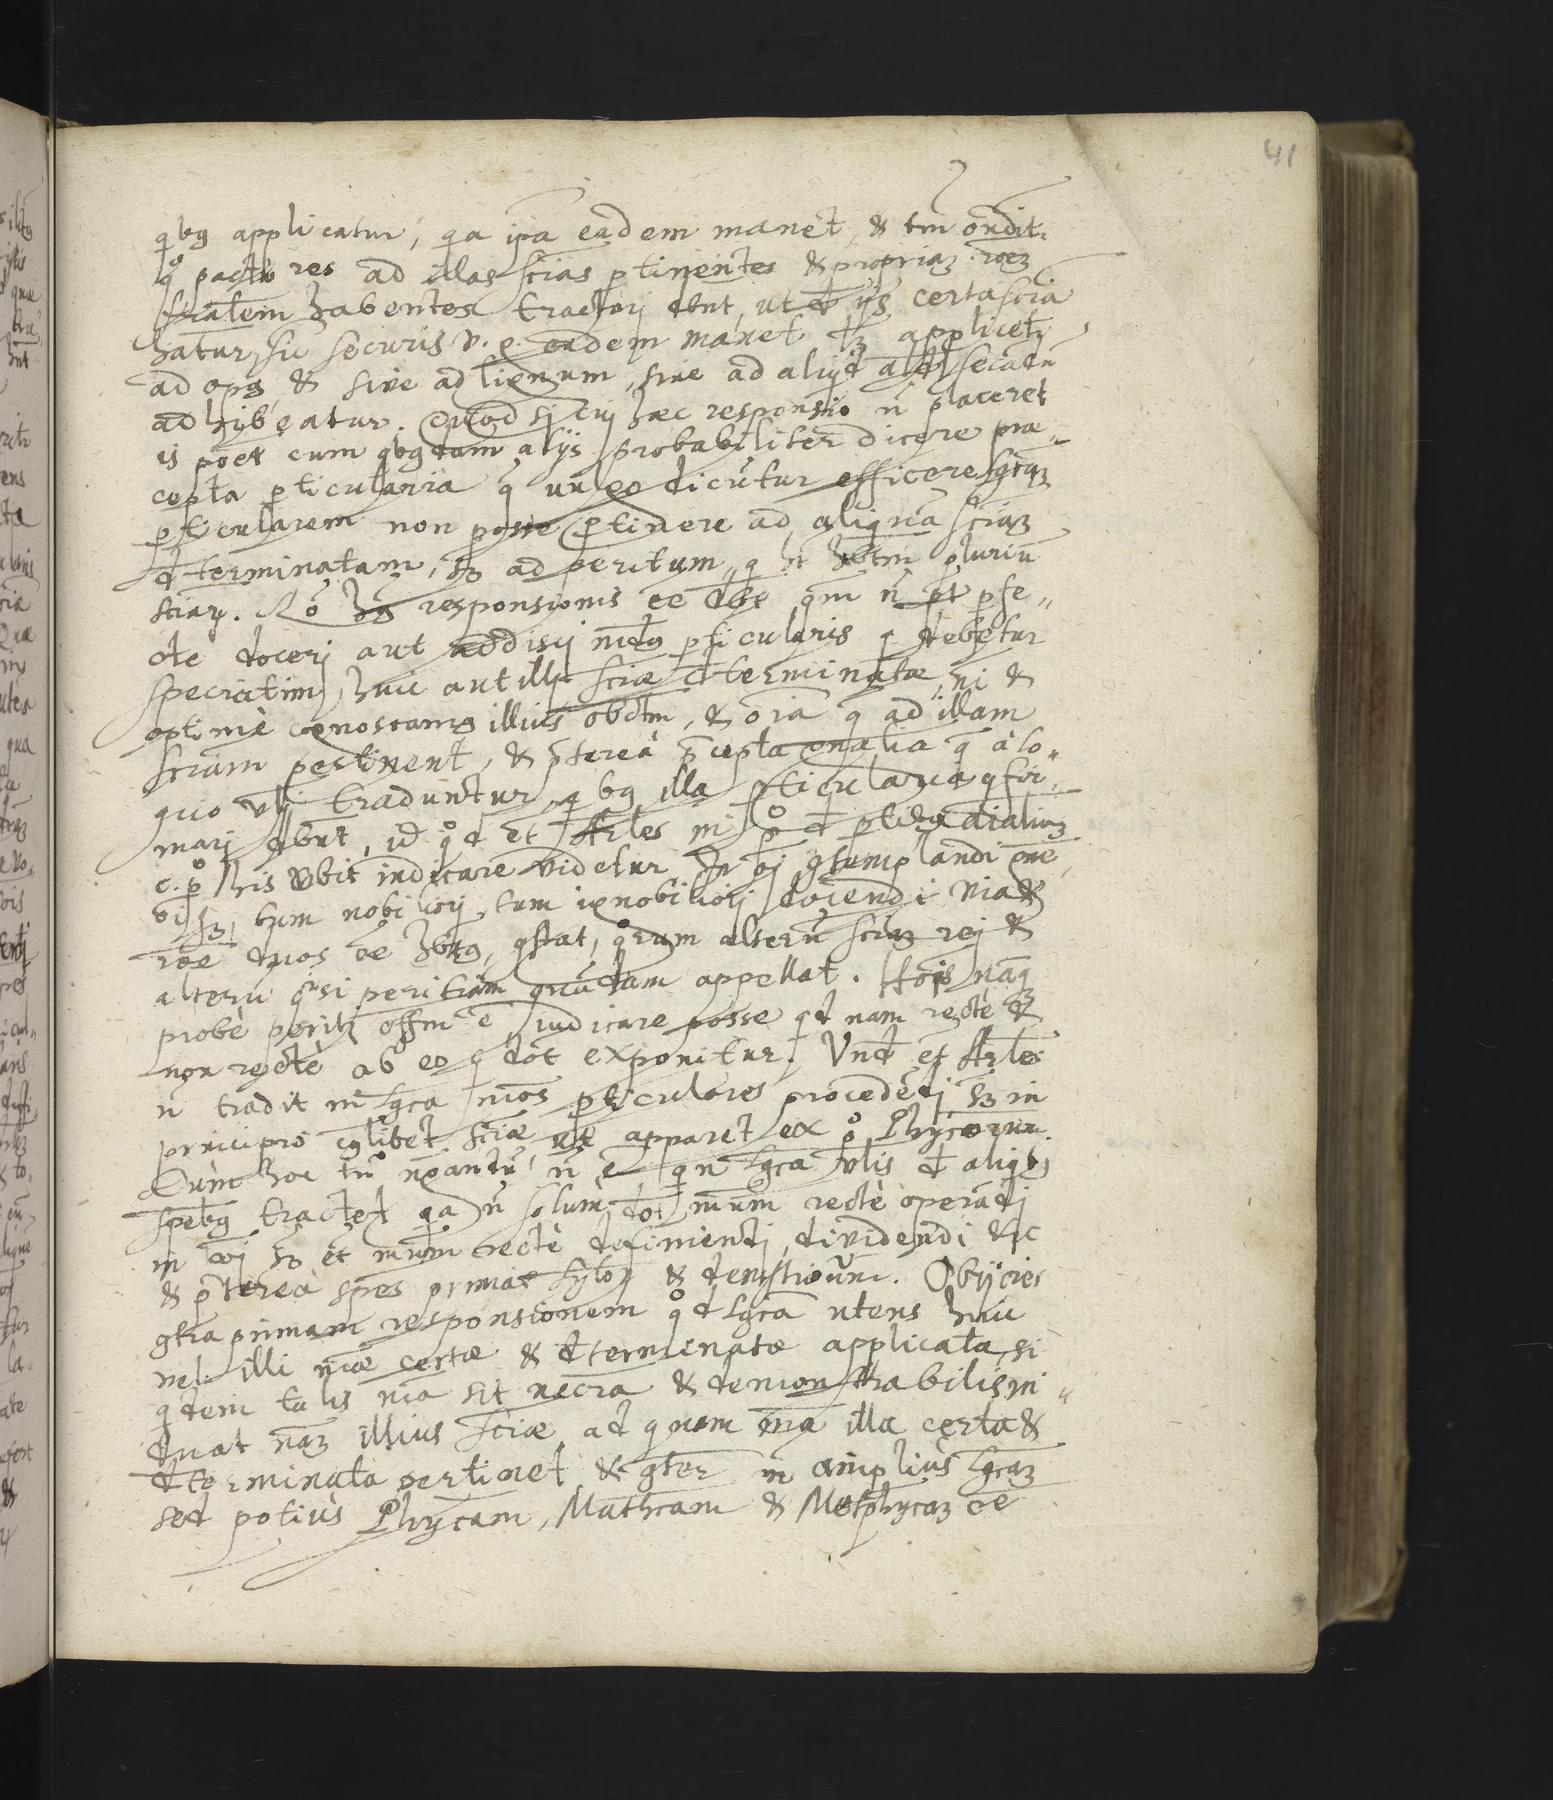 41
qbg applicatur, qa ipa eadem manet, & tm ondit
quo pacto res ad illas scias ptinentes & propriaz roez
habentes tractari dbnt, ut de ijs certa scia
hatur, sic securis v. g. eadem manet applicet
ad opg & sive ad lignum, sive ad aliqd aliud secandu
adhibeatur. Quod si cui hæc responsio n placeret
is poet cum qbgdam alijs probabiliter dicere præ-
cepta pticularia q dicutur efficere lgcaz
pticularem non posse ptinere ad aliqua sciaz
dterminatam, sz ad peritum, q ht hbtm pluriu
sciaru. Ro hg responsionis ee dbt qm n pt pfe-
cte doceri aut addisci mdg pticularis q debetur
speciatim huic aut illi sciæ dterminatæ, ni &
optimè cognoscamg illius obctm, & oia q ad illam
sciam pertinent, & pterea pcepta gnalia q à lo-
gico vli traduntur, qbg illa pticularia qfor-
mari dbnt, id qd et Arles in po d ptibg aialium
c. po his vbis indicare videtur. In oi gtemplandi one
viaqz, tum nobiliori, tum ignobiliori docendi via &
roe duos ee hbtg, qstat, quorum alteru sciaz rei &
alteru qsi peritiam quandam appellat. Hois naqz
probè periti offm e, iudicare posse qd nam rectè &
non rectè ab eo q dot exponitur. Vnde et Arles
n tradit in lgca mos pticulares procededi sz in
principio cglibet sciæ, ut apparet ex po Phycorum.
Dum hoc tn negantu, n e qn lgca vlis de aliqbg
spebg tractet qa n solum dot mum rectè operadi
in coi sz et mum rectè definiendi, dividendi &c
& pterea spes primas syloru & demstrounm. Obijcies
gtra primam responsionem qd lgca utens huic
vel illi mæ certæ & dterminatæ applicata, si
qdem talis ma sit necria & demonstrabilis in-
duat naz illius sciæ ad quam ma illa certa &
dterminata pertinet & gter n amplius lgcaz
sed potius Phycam, Mathcam & Metphycaz ee